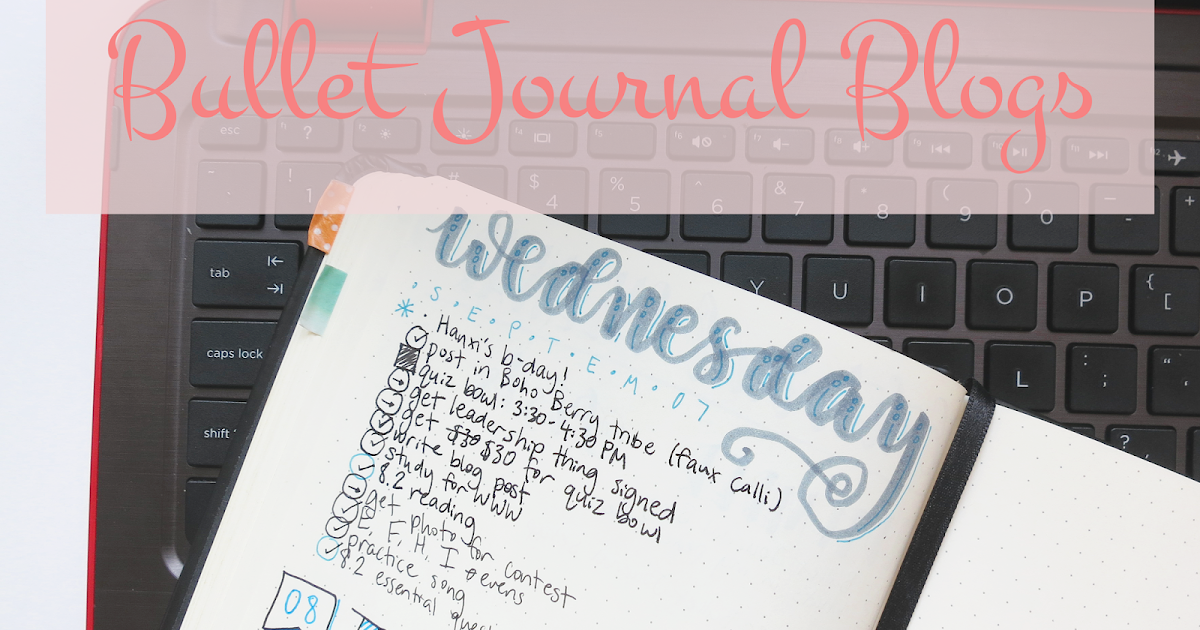 Bullet Journal Blogs
esc
f1 ? f2 f4 f5 f6 f7 f8 f9 f10 f11 f12
- . ! 1 # $ 4 % 5 ^ 6 & 7 * 8 ( 9 ) 0 — - +
tab Y U I O P { [
caps lock L : ; “ ‘
shift ?
wednesday
· S · E · P · T · E · M · 07
* · Hanxi's b-day!
post in Boho Berry tribe (faux calli)
quiz bowl: 3:30-4:30 PM
get leadership thing signed
get $30 $30 for quiz bowl
write blog post
study for WWW
8.2 reading
get photo for contest
E, F, H, I evens
practice song
8.2 essential
08